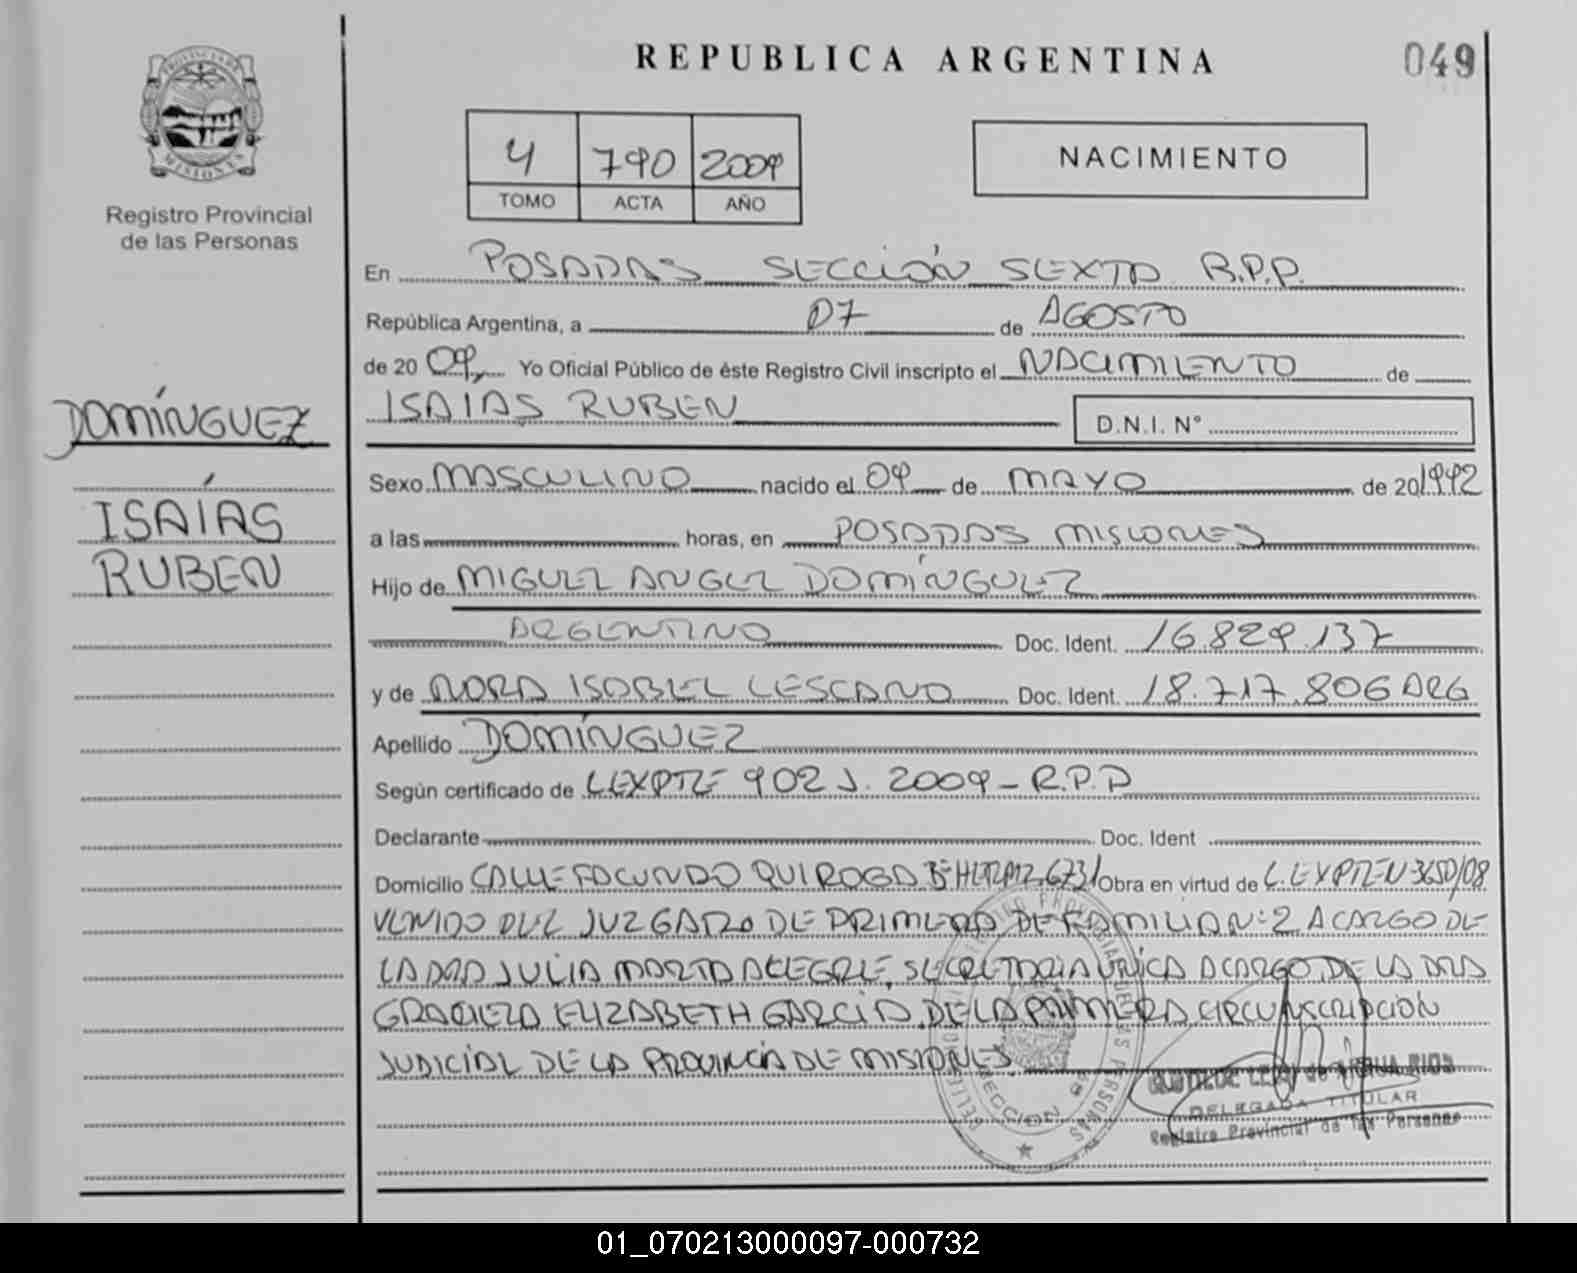 REPUBLICA ARGENTINA
049
PROVINCIA DE
MISIONES
Registro Provincial
de las Personas
4 790 2009
TOMO ACTA AÑO
NACIMIENTO
En POSADAS SECCIÓN SEXTA R.P.P.
República Argentina, a 07 de AGOSTO
de 20 09, Yo Oficial Público de éste Registro Civil inscripto el NACIMIENTO de
ISAIAS RUBEN D.N.I. N°
DOMÍNGUEZ
ISAÍAS
RUBEN
Sexo MASCULINO nacido el 09 de MAYO de 20 1992
a las horas, en POSADAS MISIONES
Hijo de MIGUEL ANGEL DOMÍNGUEZ
ARGENTINO Doc. Ident. 16.829.137
y de NORA ISABEL LESCANO Doc. Ident. 18.717.806 ARG
Apellido DOMÍNGUEZ
Según certificado de L.EXPTE 902 J. 2009 - R.P.P
Declarante Doc. Ident
Domicilio CALLE FACUNDO QUIROGA 673 Obra en virtud de L. EXPTE N 3650/08
VENIDO DEL JUZGADO DE PRIMERA DE FAMILIA Nº 2 A CARGO DE
LA DRA JULIA MARTA ALEGRE, SECRETARIA UNICA A CARGO DE LA DRA
GRACIELA ELIZABETH GARCÍA, DE LA PRIMERA CIRCUNSCRIPCIÓN
JUDICIAL DE LA PROVINCIA DE MISIONES.
DELEGADA TITULAR
Registro Provincial de las Personas
01_070213000097-000732